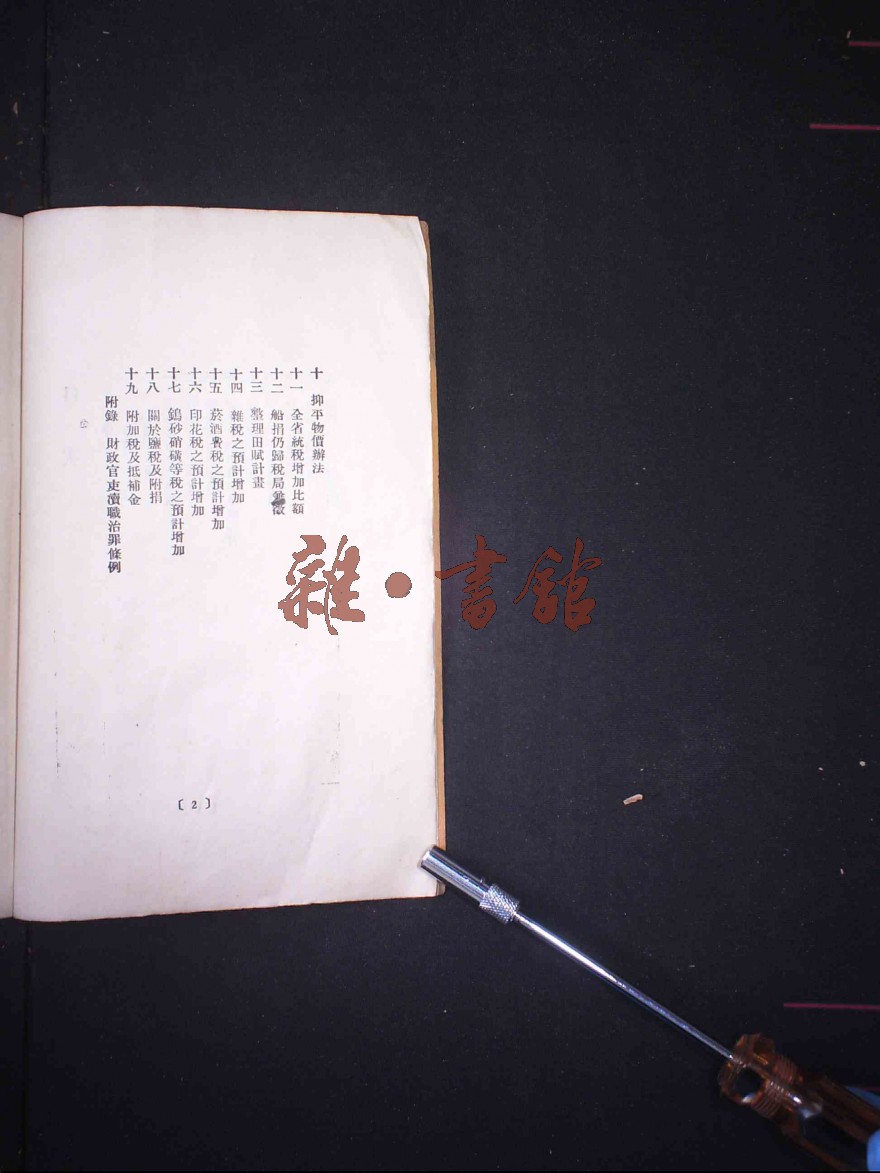 十　抑平物價辦法
十一　全省統稅增加比額
十二　船捐仍歸稅局兼徵
十三　整理田賦計畫
十四　雜稅之預計增加
十五　菸酒費稅之預計增加
十六　印花稅之預計增加
十七　鎢砂硝磺等稅之預計增加
十八　關於鹽稅及附捐
十九　附加稅及抵補金
附錄　財政官吏瀆職治罪條例
〔2〕
雜·書館